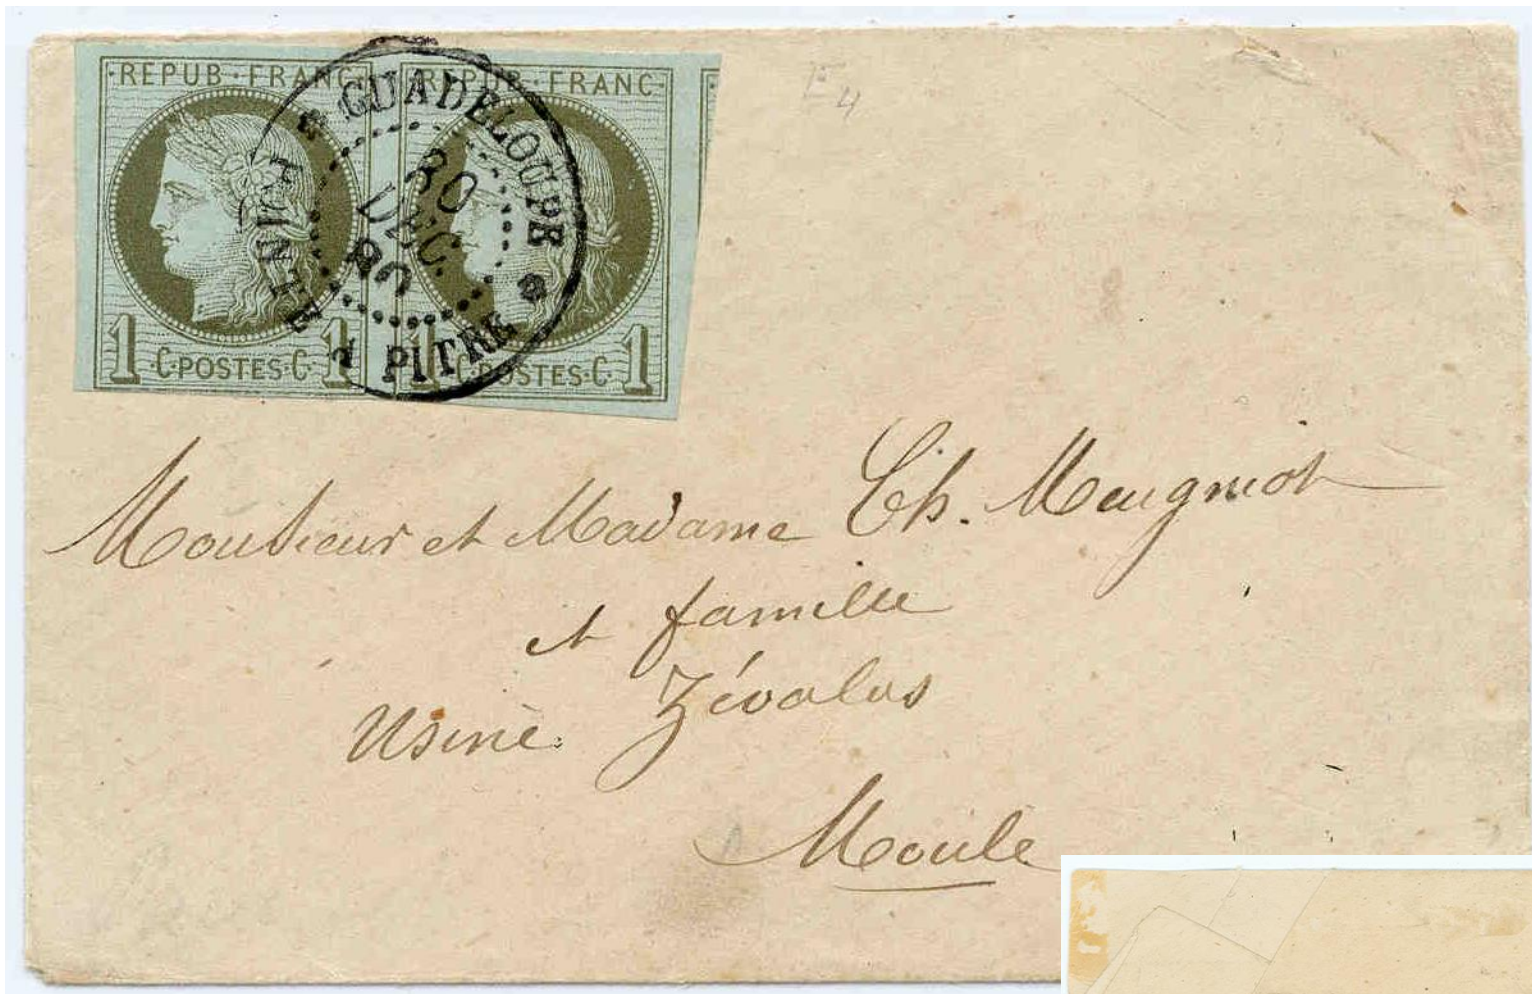 ·REPUB·FRANC· REPUB·FRANC·
1 ·C·POSTES·C· 1 1 ·C·POSTES·C· 1
GUADELOUPE
30
DEC.
80
POINTE A PITRE
E 4
Monsieur et Madame Ch. Maugniot
et famille
Usine Zévalos
Moule